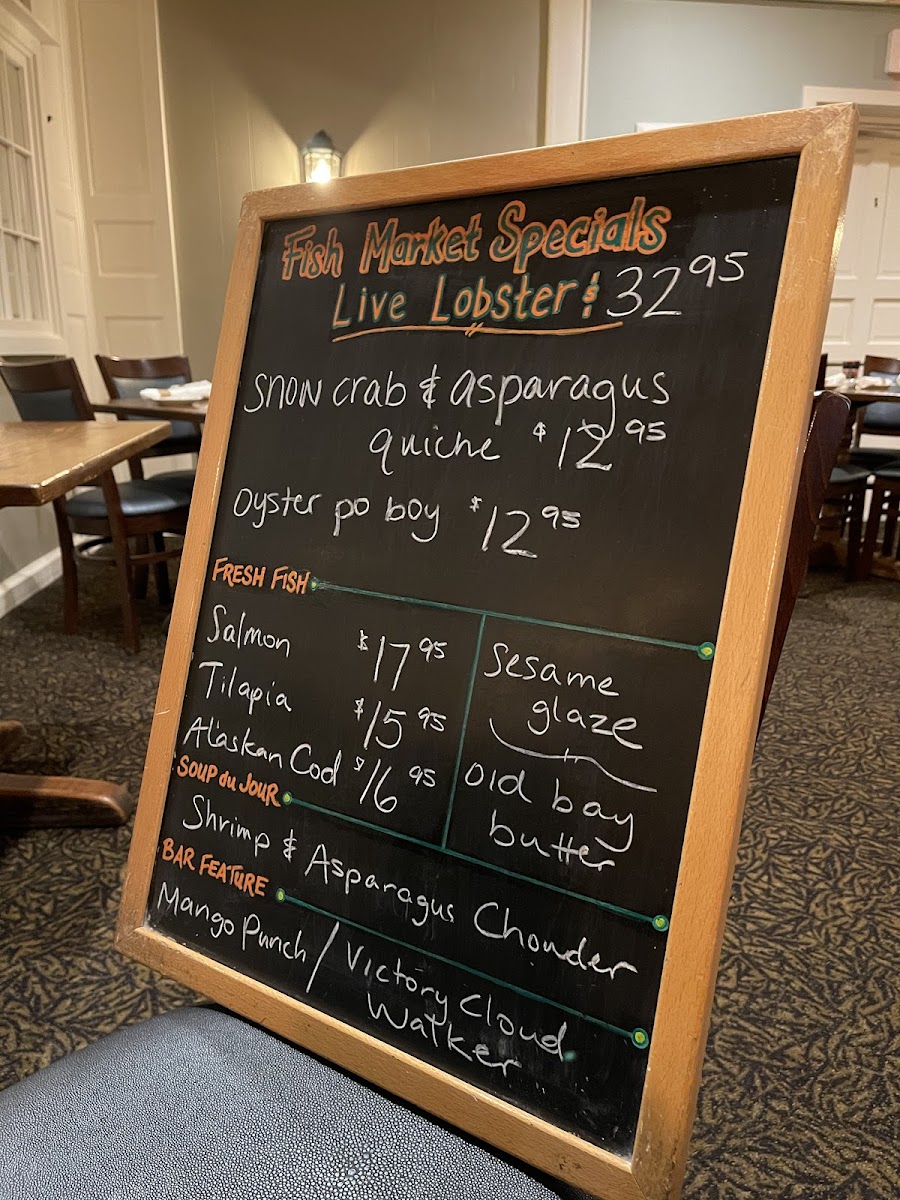 Fish Market Specials
Live Lobster $32 95
snow crab & asparagus
quiche $12 95
oyster po boy $12 95
FRESH FISH
Salmon $17 95
Tilapia $15 95
Alaskan Cod $16 95
Sesame
glaze
old bay
butter
SOUP du JOUR
Shrimp & Asparagus Chowder
BAR FEATURE
Mango Punch / Victory Cloud
Walker